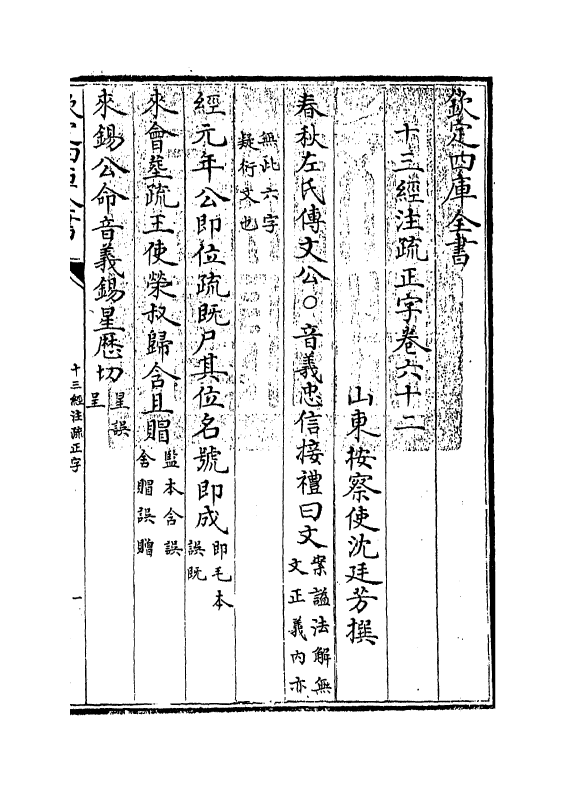 欽定四庫全書
十三經注疏正字卷六十二
山東按察使沈廷芳撰
春秋左氏傳文公○音義忠信接禮曰文案諡法解無
文正義内亦
無此六字
疑衍文也
經元年公即位疏既尸其位名號即成即毛本
誤既
來會葬疏王使榮叔歸含且賵監本含誤
含賵誤贈
來錫公命音義錫星歷切星誤
呈
欽定四庫全書
十三經注疏正字
一